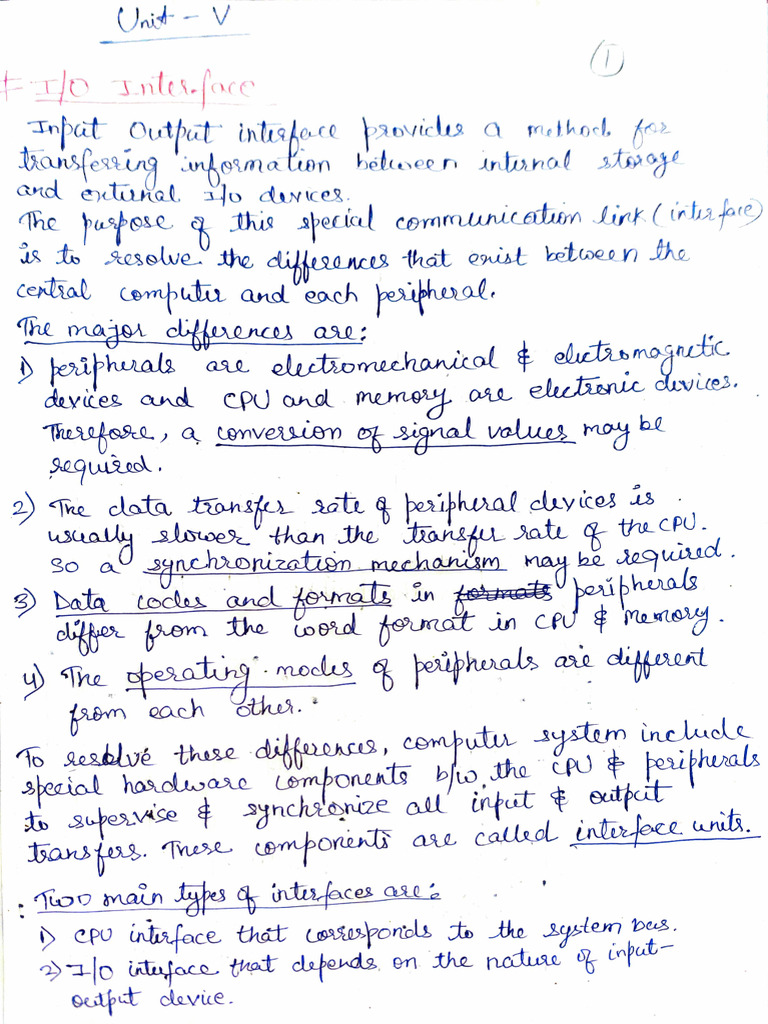 Unit - V
1
# I/O Interface
Input Output interface provides a method for
transferring information between internal storage
and external I/O devices.
The purpose of this special communication link (interface)
is to resolve the differences that exist between the
central computer and each peripheral.
The major differences are:
1) peripherals are electromechanical & electromagnetic
devices and CPU and memory are electronic devices.
Therefore, a conversion of signal values may be
required.
2) The data transfer rate of peripheral devices is
usually slower than the transfer rate of the CPU.
So a synchronization mechanism may be required.
3) Data codes and formats in formats peripherals
differ from the word format in CPU & Memory.
4) The operating modes of peripherals are different
from each other.
To resolve these differences, computer system include
special hardware components b/w the CPU & peripherals
to supervise & synchronize all input & output
transfers. These components are called interface units.
: Two main types of interfaces are:
1) CPU interface that corresponds to the system bus.
2) I/O interface that depends on the nature of input-
output device.